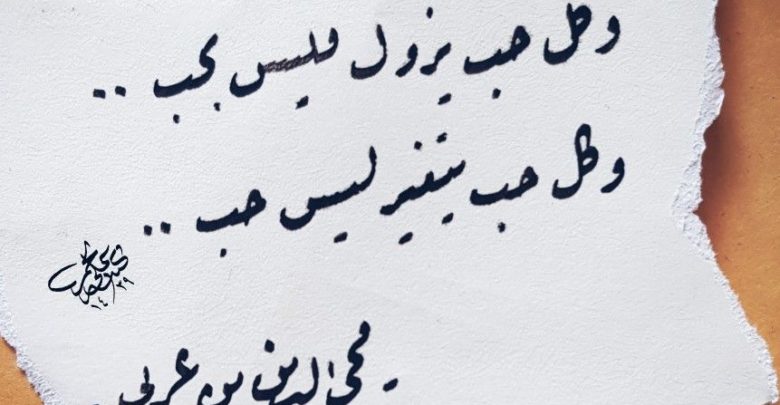 وكل حب يزول فليس بحب ..
وكل حب يتغير ليس حب ..
محي الدين بن عربي